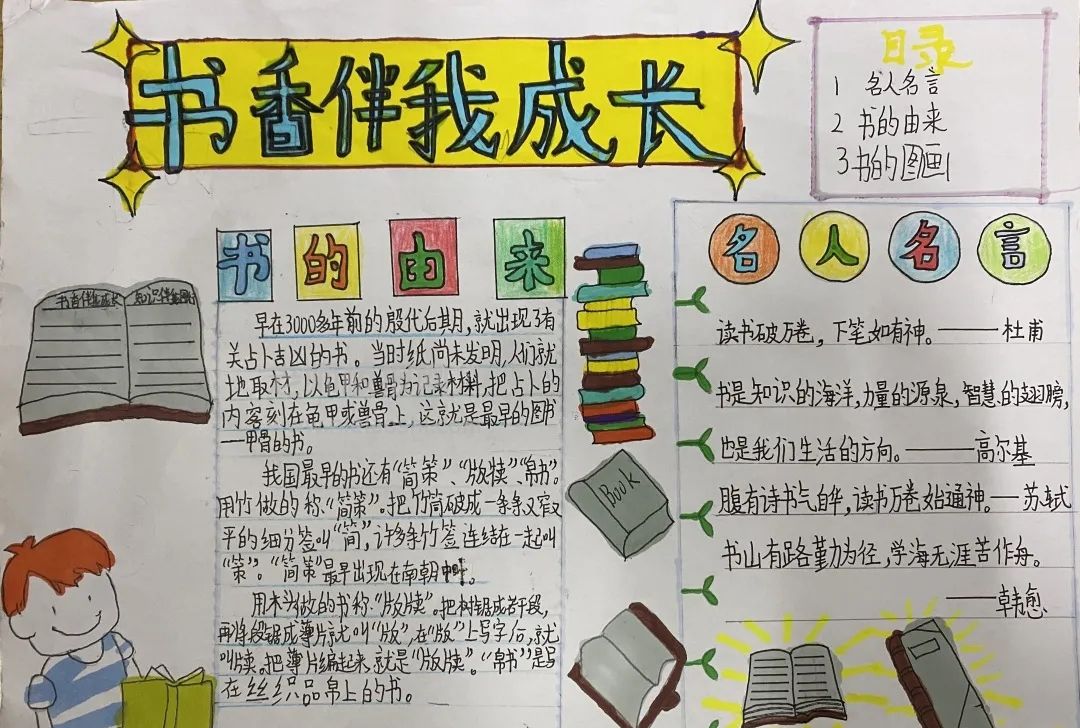 书香伴我成长
目录
1 名人名言
2 书的由来
3 书的图画
书的由来
早在3000多年前的殷代后其月,就出现了有
关占卜吉凶的书。当时纸尚未发明,人们就
地取材,以龟甲和兽骨为记录材料,把占卜的
内容刻在龟甲或兽骨上,这就是最早的图书
—甲骨的书。
我国最早的书还有“简策”、“版牍”、“帛书”。
用竹做的称“简策”。把竹筒破成一条条又窄又
平的细分签叫“简”,许多条竹签连结在一起叫
“策”。“简策”最早出现在南朝中叶。
用木头做的书称“版牍”。把树锯成若干段,
再将段锯成薄片就叫“版”,在“版”上写字后,就
叫牍。把薄片编起来,就是“版牍”。“帛书”是写
在丝织品帛上的书。
书香伴我成长 知识伴我
Book
名人名言
读书破万卷,下笔如有神。——杜甫
书是知识的海洋,力量的源泉,智慧的翅膀,
也是我们生活的方向。——高尔基
腹有诗书气自华,读书万卷始通神。—苏轼
书山有路勤为径,学海无涯苦作舟。
——韩愈